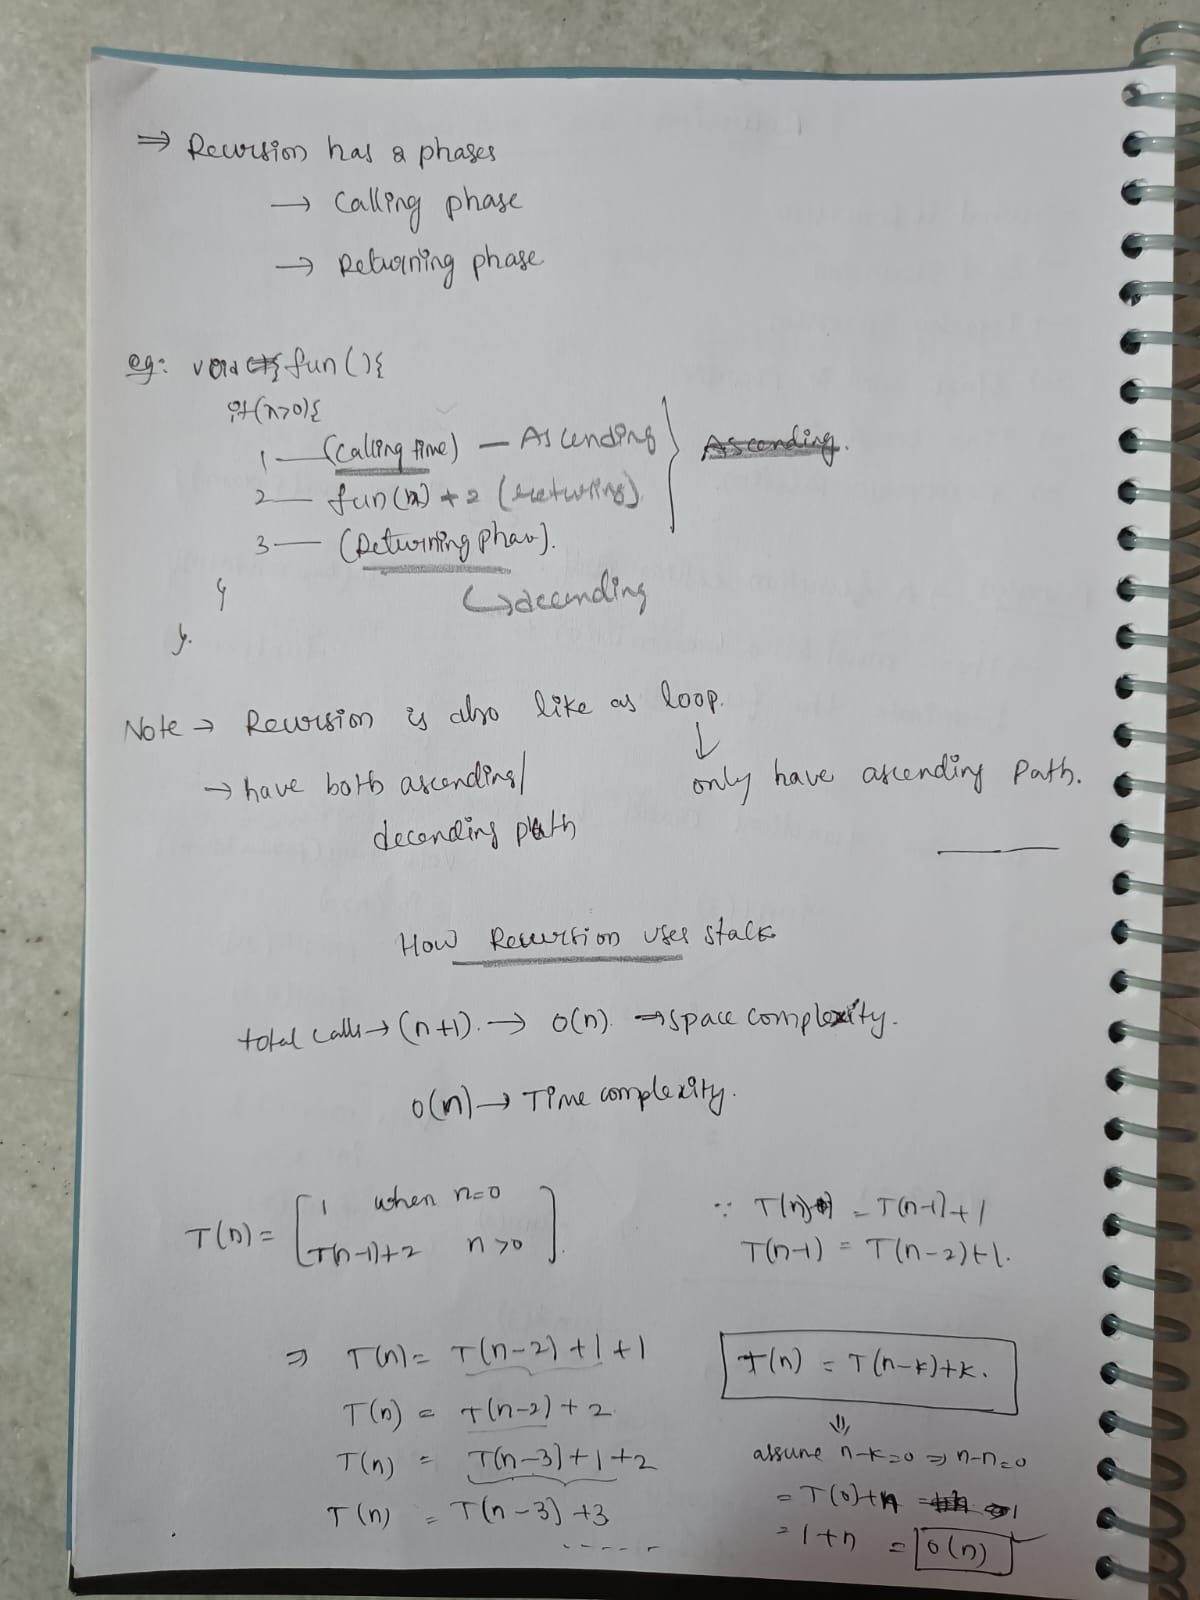 ⇒ Recursion has 2 phases
→ Calling phase
→ Returning phase
eg: void fun(){
if(n>0){
1 — (calling time) — Ascending
Ascending.
2 — fun(n) * 2 (returing)
3 — (Returning Phase).
↳ decending
}
}.
Note → Recursion is also like as loop.
→ have both ascending/
decending path
↓
only have ascending Path.
How Recursion uses stack
total calls → (n+1). → O(n). ⇒ space complexity.
O(n) → Time complexity.
T(n) = [ 1 when n=0
T(n-1)+2 n>0 ].
∵ T(n) = T(n-1)+1
T(n-1) = T(n-2)+1.
⇒ T(n) = T(n-2)+1+1
T(n) = T(n-2)+2
T(n) = T(n-3)+1+2
T(n) = T(n-3)+3
-----
T(n) = T(n-k)+k.
⇓
assume n-k=0 ⇒ n-n=0
= T(0)+n
= 1+n = O(n)